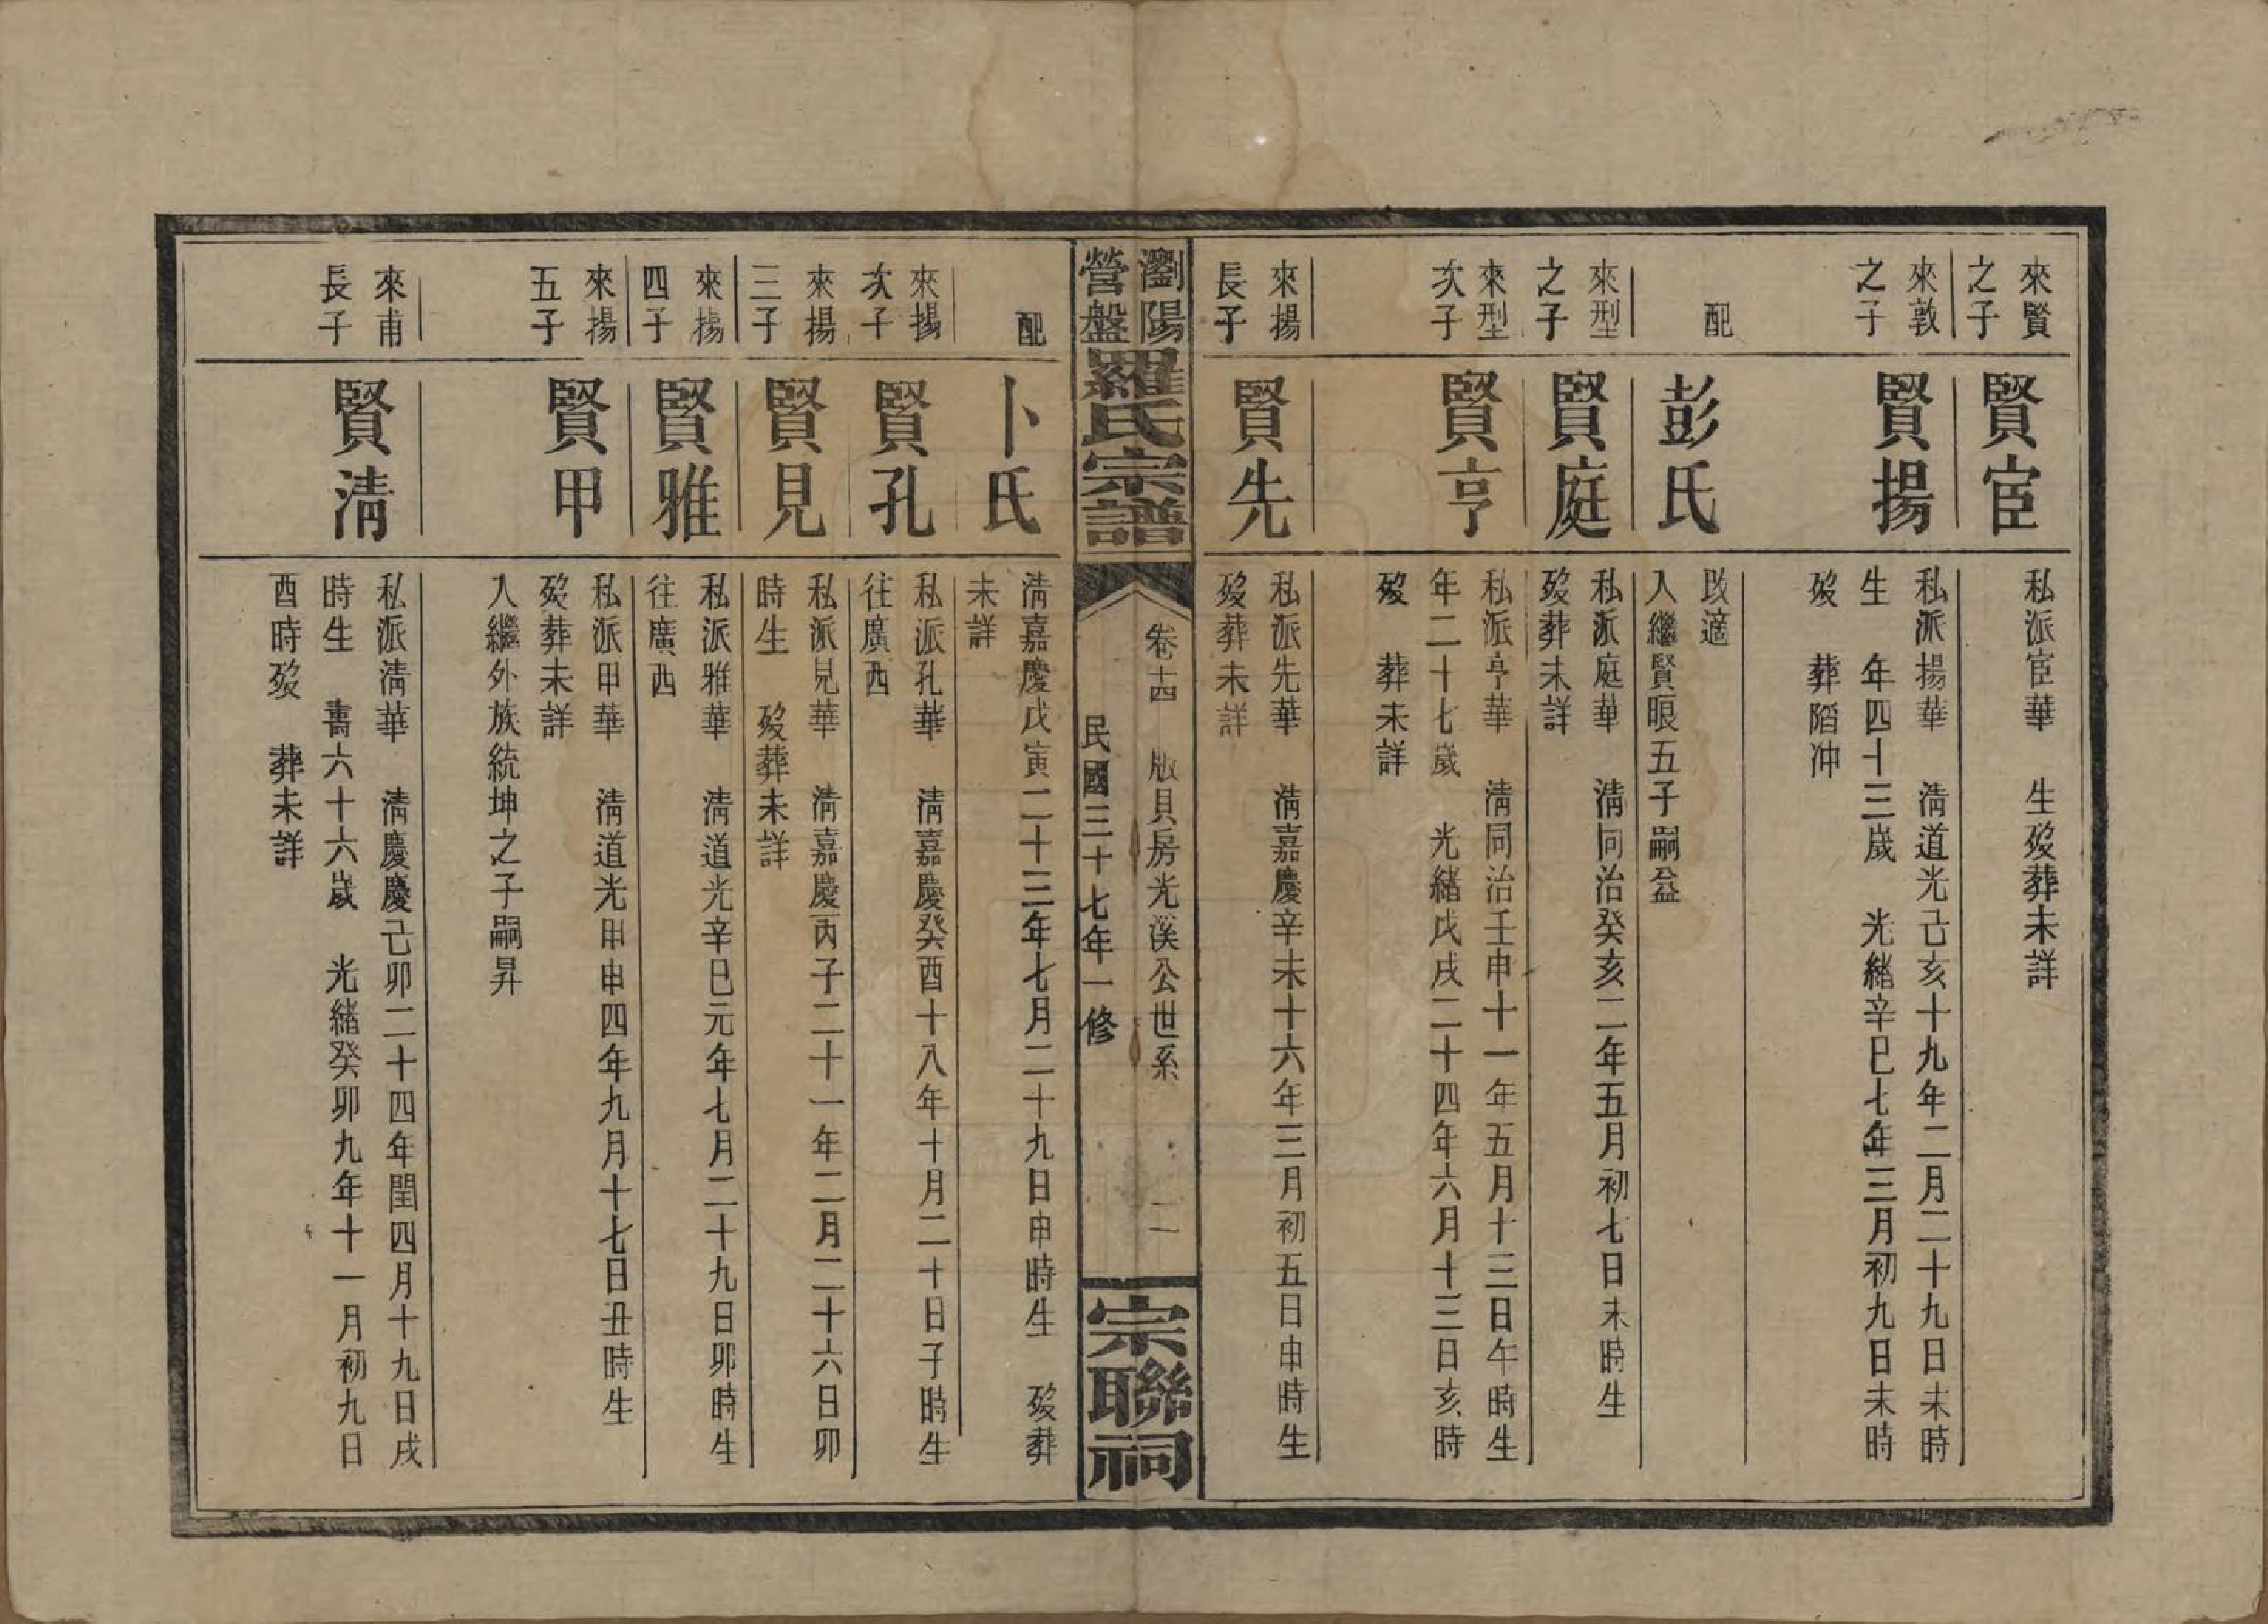 來賢
之子
賢宦
私派宦華　生歿葬未詳
來敦
之子
賢揚
私派揚華　淸道光己亥十九年二月二十九日未時
生　年四十三歲　光緖辛巳七年三月初九日未時
歿　葬蹈冲
配
彭氏
改適
入繼賢眼五子嗣益
來型
之子
賢庭
私派庭華　淸同治癸亥二年五月初七日未時生
歿葬未詳
來型
次子
賢亨
私派亨華　淸同治壬申十一年五月十三日午時生
年二十七歲　光緖戊戌二十四年六月十三日亥時
歿　葬未詳
來揚
長子
賢先
私派先華　淸嘉慶辛未十六年三月初五日申時生
歿葬未詳
瀏陽
營盤
羅氏宗譜
卷十四　版貝房光溪公世系　二
民國三十七年一修
宗聯祠
配
卜氏
淸嘉慶戊寅二十三年七月二十九日申時生　歿葬
未詳
來揚
次子
賢孔
私派孔華　淸嘉慶癸酉十八年十月二十日子時生
往廣西
來揚
三子
賢見
私派見華　淸嘉慶丙子二十一年二月二十六日卯
時生　歿葬未詳
來揚
四子
賢雅
私派雅華　淸道光辛巳元年七月二十九日卯時生
往廣西
來揚
五子
賢甲
私派甲華　淸道光甲申四年九月十七日丑時生
歿葬未詳
入繼外族統坤之子嗣昇
來甫
長子
賢淸
私派淸華　淸慶慶己卯二十四年閏四月十九日戌
時生　壽六十六歲　光緖癸卯九年十一月初九日
酉時歿　葬未詳